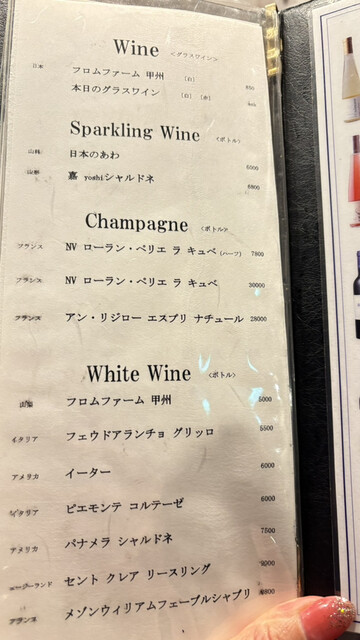 Wine <グラスワイン>
日本 フロムファーム 甲州 [白] 850
本日のグラスワイン [白] [赤]
Sparkling Wine <ボトル>
日本のあわ 6000
嘉 yoshiシャルドネ 6800
Champagne <ボトル>
フランス NV ローラン・ペリエ ラ キュベ (ハーフ) 7800
フランス NV ローラン・ペリエ ラ キュベ 30000
フランス アン・リジロー エスプリ ナチュール 28000
White Wine <ボトル>
フロムファーム 甲州 5000
イタリア フェウドアランチョ グリッロ 5500
アメリカ イーター 6000
イタリア ピエモンテ コルテーゼ 6000
アメリカ パナメラ シャルドネ 7500
セント クレア リースリング 9000
フランス メゾンウィリアムフェーブルシャブリ